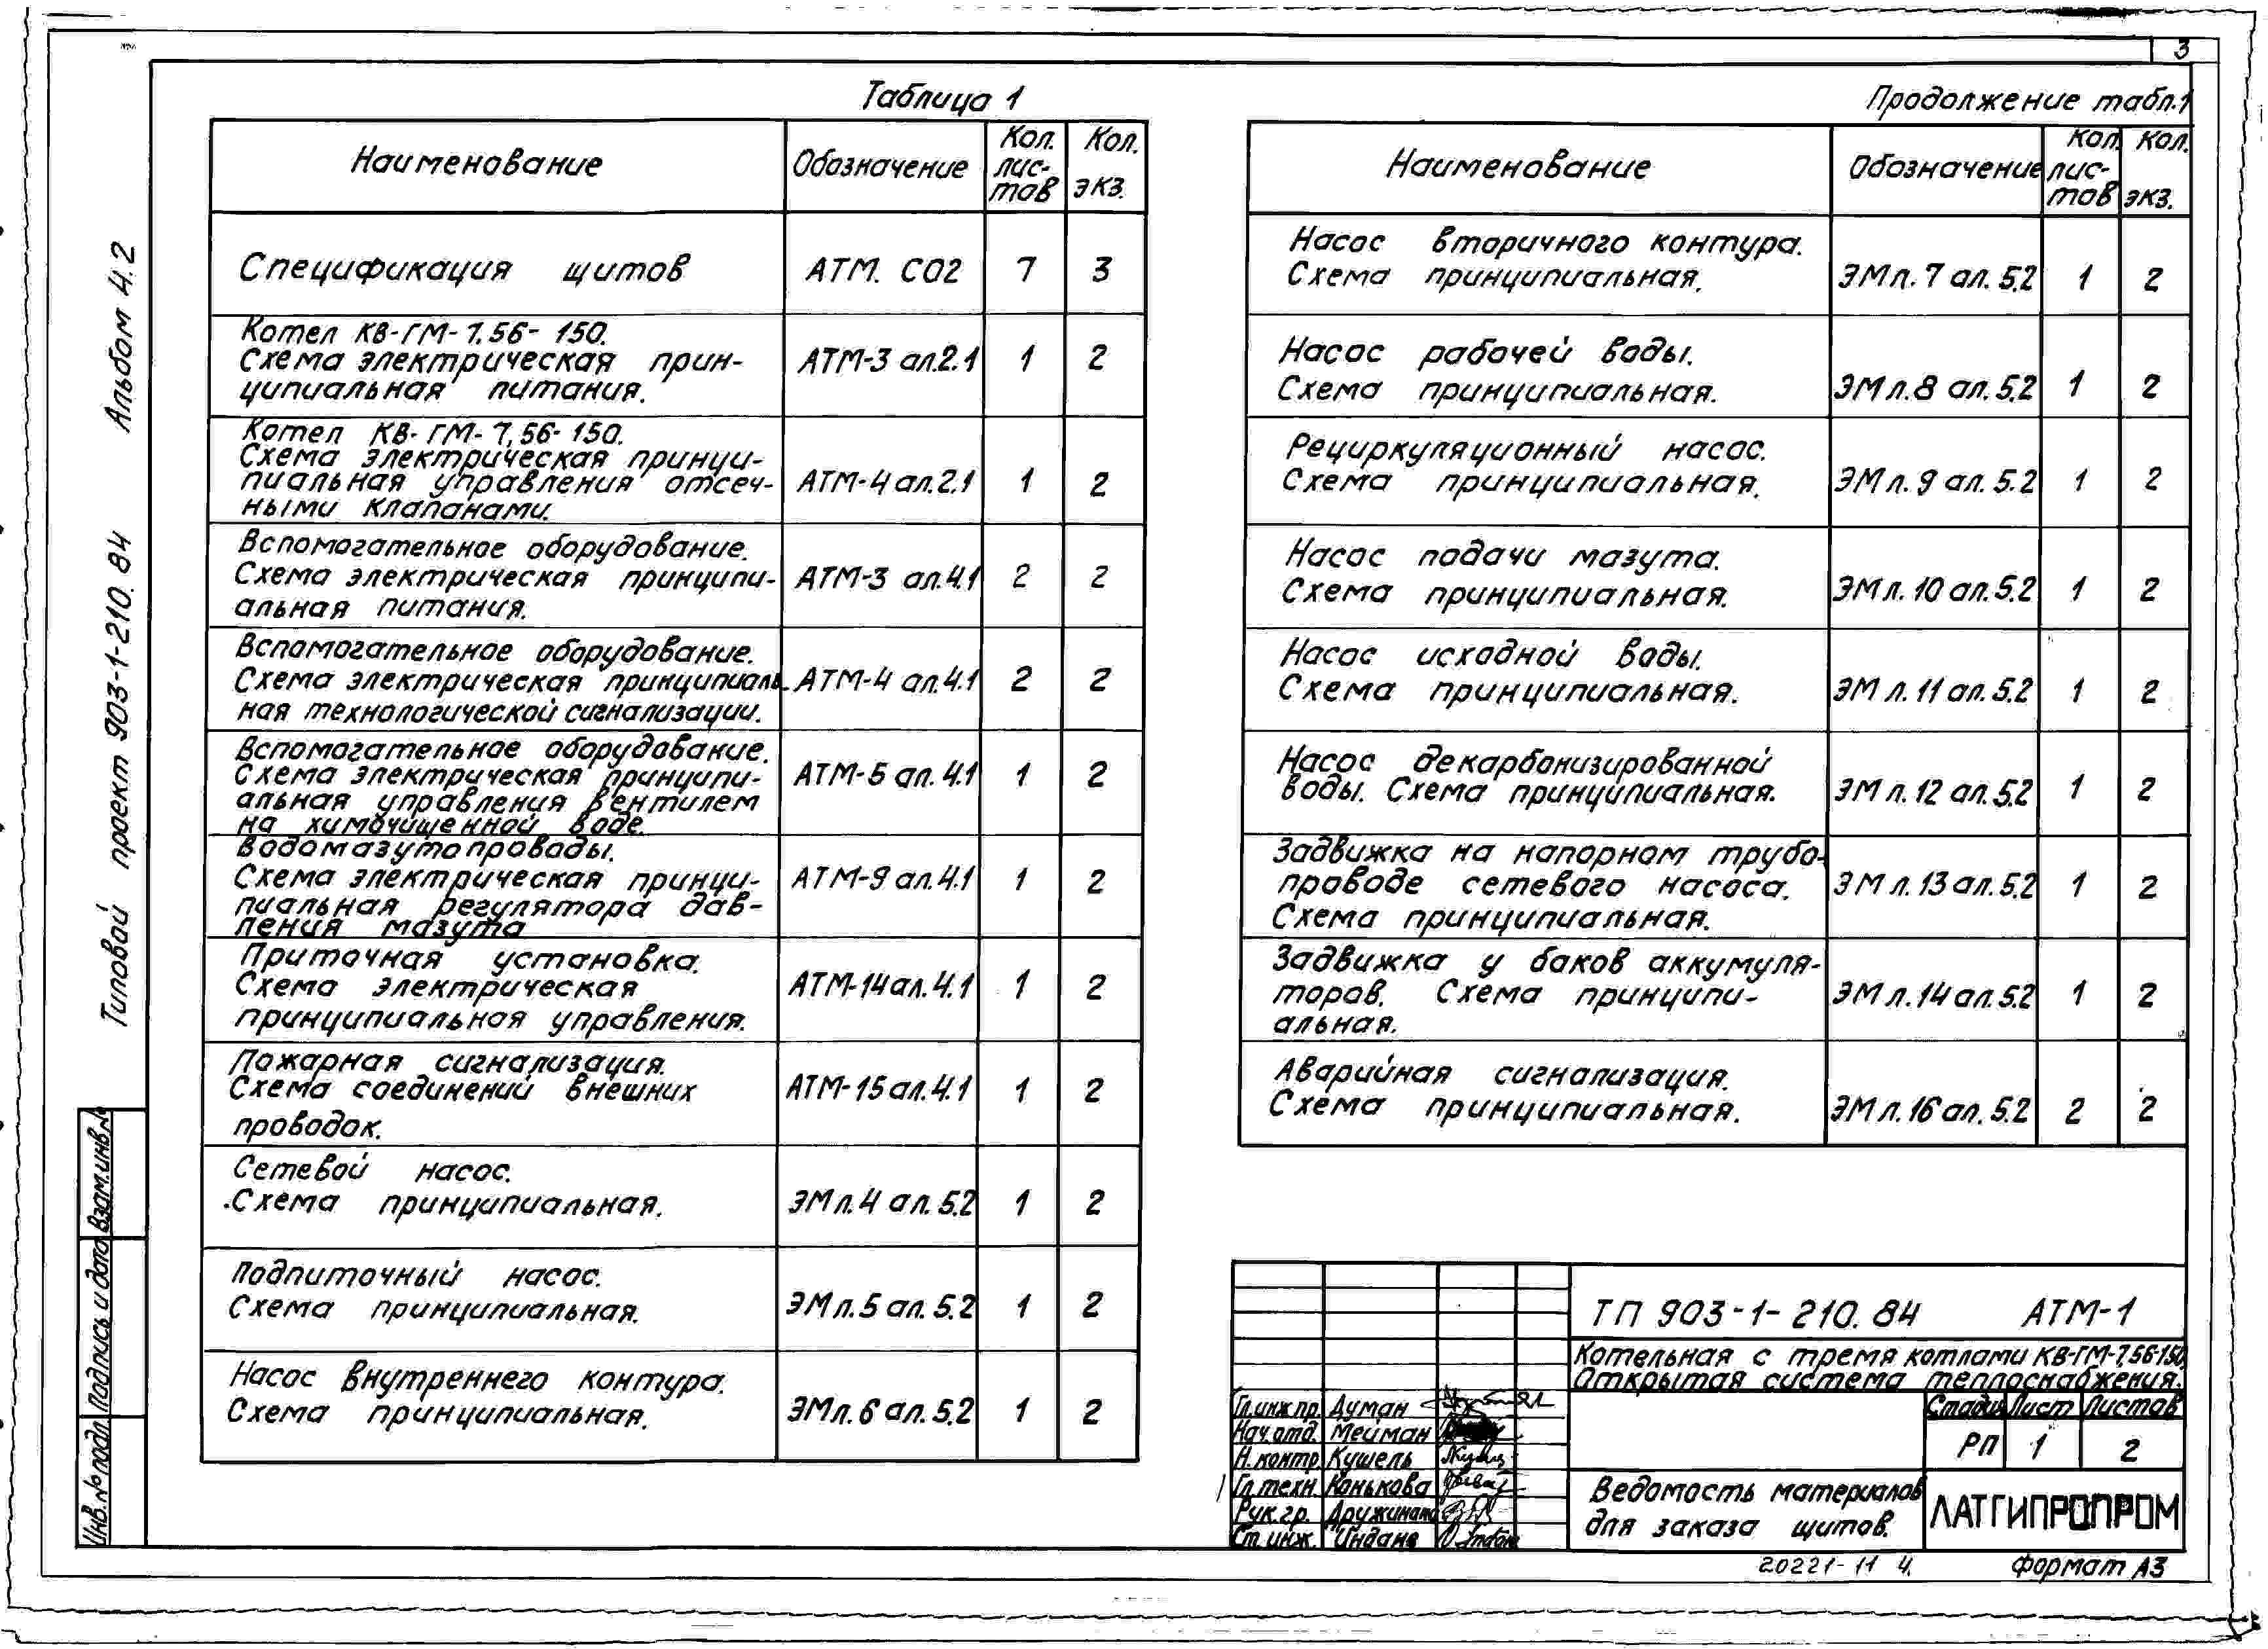 3
Таблица 1
Наименование
Обозначение
Кол. лис-тав
Кол. экз.
Спецификация щитов
АТМ. СО2
7
3
Котел КВ-ГМ-7.56-150.
Схема электрическая прин-
ципиальная питания.
АТМ-3 ал.2.1
1
2
Котел КВ-ГМ-7,56-150.
Схема электрическая принци-
пиальная управления отсеч-
ными клапанами.
АТМ-4 ал.2.1
1
2
Вспомогательное оборудование.
Схема электрическая принципи-
альная питания.
АТМ-3 ал.4.1
2
2
Вспомогательное оборудование.
Схема электрическая принципиаль-
ная технологической сигнализации.
АТМ-4 ал.4.1
2
2
Вспомогательное оборудование.
Схема электрическая принципи-
альная управления вентилем
на химочищенной воде.
АТМ-5 ал.4.1
1
2
Водомазутопроводы.
Схема электрическая принци-
пиальная регулятора дав-
ления мазута
АТМ-9 ал.4.1
1
2
Приточная установка.
Схема электрическая
принципиальная управления.
АТМ-14 ал.4.1
1
2
Пожарная сигнализация.
Схема соединений внешних
проводок.
АТМ-15 ал.4.1
1
2
Сетевой насос.
Схема принципиальная.
ЭМ л.4 ал.5.2
1
2
Подпиточный насос.
Схема принципиальная.
ЭМ л.5 ал.5.2
1
2
Насос внутреннего контура.
Схема принципиальная.
ЭМ л.6 ал.5.2
1
2
Продолжение табл.1
Наименование
Обозначение
Кол. лис-тов
Кол. экз.
Насос вторичного контура.
Схема принципиальная.
ЭМ л.7 ал.5.2
1
2
Насос рабочей воды.
Схема принципиальная.
ЭМ л.8 ал.5.2
1
2
Рециркуляционный насос.
Схема принципиальная.
ЭМ л.9 ал.5.2
1
2
Насос подачи мазута.
Схема принципиальная.
ЭМ л.10 ал.5.2
1
2
Насос исходной воды.
Схема принципиальная.
ЭМ л.11 ал.5.2
1
2
Насос декарбонизированной
воды. Схема принципиальная.
ЭМ л.12 ал.5.2
1
2
Задвижка на напорном трубо-
проводе сетевого насоса.
Схема принципиальная.
ЭМ л.13 ал.5.2
1
2
Задвижка у баков аккумуля-
торов. Схема принципи-
альная.
ЭМ л.14 ал.5.2
1
2
Аварийная сигнализация.
Схема принципиальная.
ЭМ л.16 ал.5.2
2
2
Типовой проект 903-1-210.84 Альбом 4.2
Инв.№подл Подпись и дата Взам.инв.№
ТП 903-1-210.84 АТМ-1
Котельная с тремя котлами КВ-ГМ-7,56-150.
Открытая система теплоснабжения.
Гл.инж.пр. Думан
Нач.отд. Мейман
Н.контр. Кушель
Гл.техн. Конькова
Рук.гр. Дружинина
Ст.инж. Индане
Стадия Лист Листов
РП 1 2
Ведомость материалов
для заказа щитов.
ЛАТГИПРОПРОМ
20221-11 4.
Формат А3